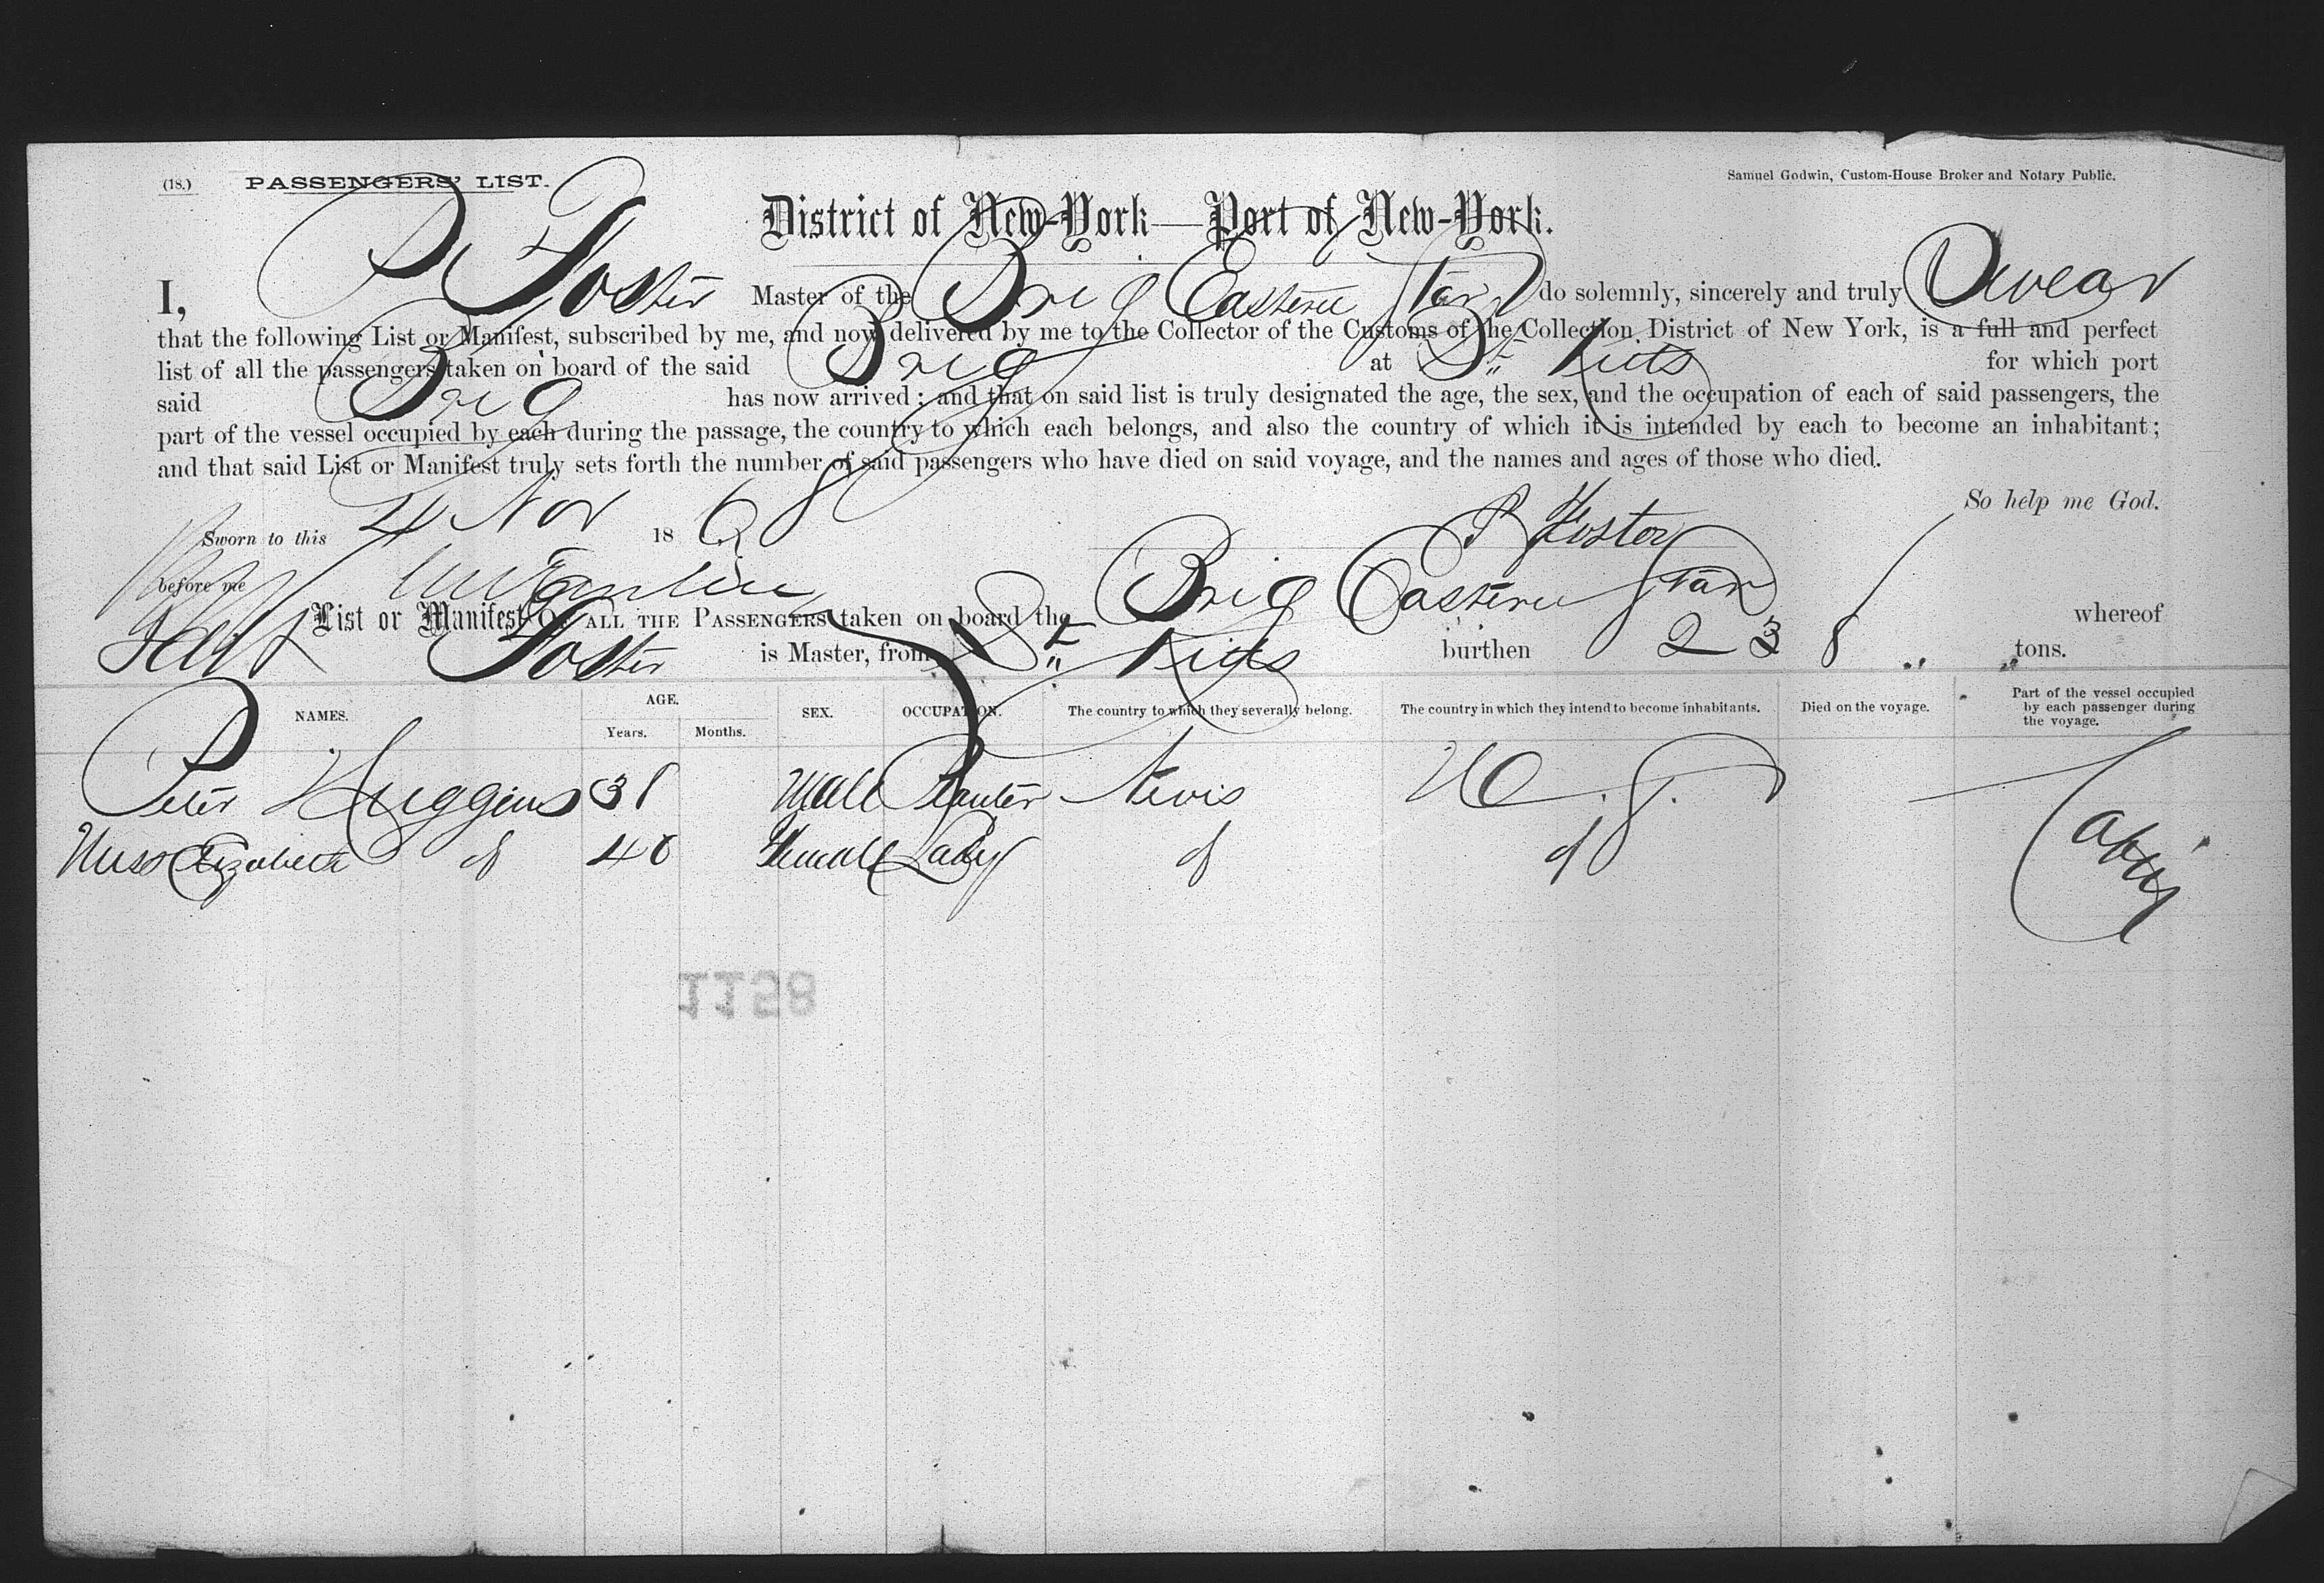 (18.) PASSENGERS' LIST. Samuel Godwin, Custom-House Broker and Notary Public.
District of New-York—Port of New-York.
I, P Foster Master of the Brig Eastern Star do solemnly, sincerely and truly Swear
that the following List or Manifest, subscribed by me, and now delivered by me to the Collector of the Customs of the Collection District of New York, is a full and perfect
list of all the passengers taken on board of the said Brig at St. Kitts for which port
said Brig has now arrived; and that on said list is truly designated the age, the sex, and the occupation of each of said passengers, the
part of the vessel occupied by each during the passage, the country to which each belongs, and also the country of which it is intended by each to become an inhabitant;
and that said List or Manifest truly sets forth the number of said passengers who have died on said voyage, and the names and ages of those who died.
So help me God.
Sworn to this 4 Nov 1868 P Foster
before me
List or Manifest OF ALL THE PASSENGERS taken on board the Brig Eastern Star whereof
Foster is Master, from St. Kitts burthen 238 tons.
NAMES. AGE. Years. Months. SEX. OCCUPATION. The country to which they severally belong. The country in which they intend to become inhabitants. Died on the voyage. Part of the vessel occupied by each passenger during the voyage.
Peter Huggins 38 Male Planter Nevis U.S.
Miss Elizabeth do 40 Female Lady do do Cabin
1158